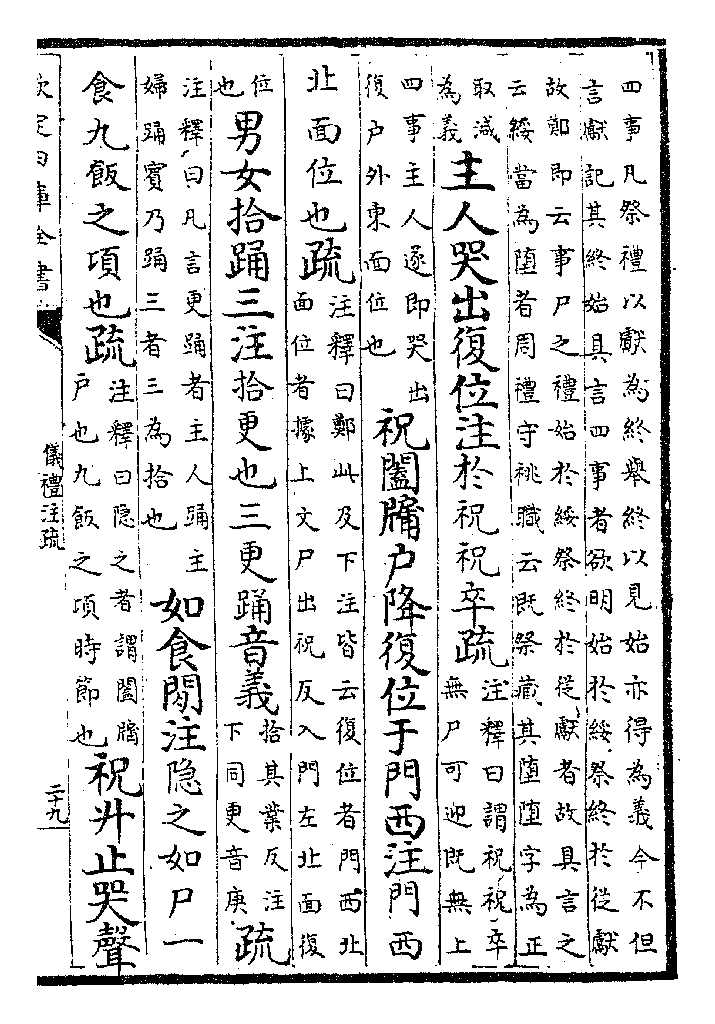 四事凡祭禮以獻為終舉終以見始亦得為義今不但
言獻記其終始具言四事者欲明始於綏祭終於從獻
故鄭即云事尸之禮始於綏祭終於從獻者故具言之
云綏當為墮者周禮守祧職云既祭藏其墮墮字為正
取減
為義
主人哭出復位注於祝祝卒疏
注釋曰謂祝祝卒
無尸可迎既無上
四事主人遂即哭出
復户外東面位也
祝闔牖户降復位于門西注門西
北面位也疏
注釋曰鄭此及下注皆云復位者門西北
面位者據上文尸出祝反入門左北面復
位
也
男女拾踊三注拾更也三更踊音義
拾其業反注
下同更音庚
疏
注釋曰凡言更踊者主人踊主
婦踊賓乃踊三者三為拾也
如食閒注隐之如尸一
食九飯之頃也疏
注釋曰隐之者謂闔牖
户也九飯之項時節也
祝升止哭聲
欽定四庫全書
儀禮注疏
二十九